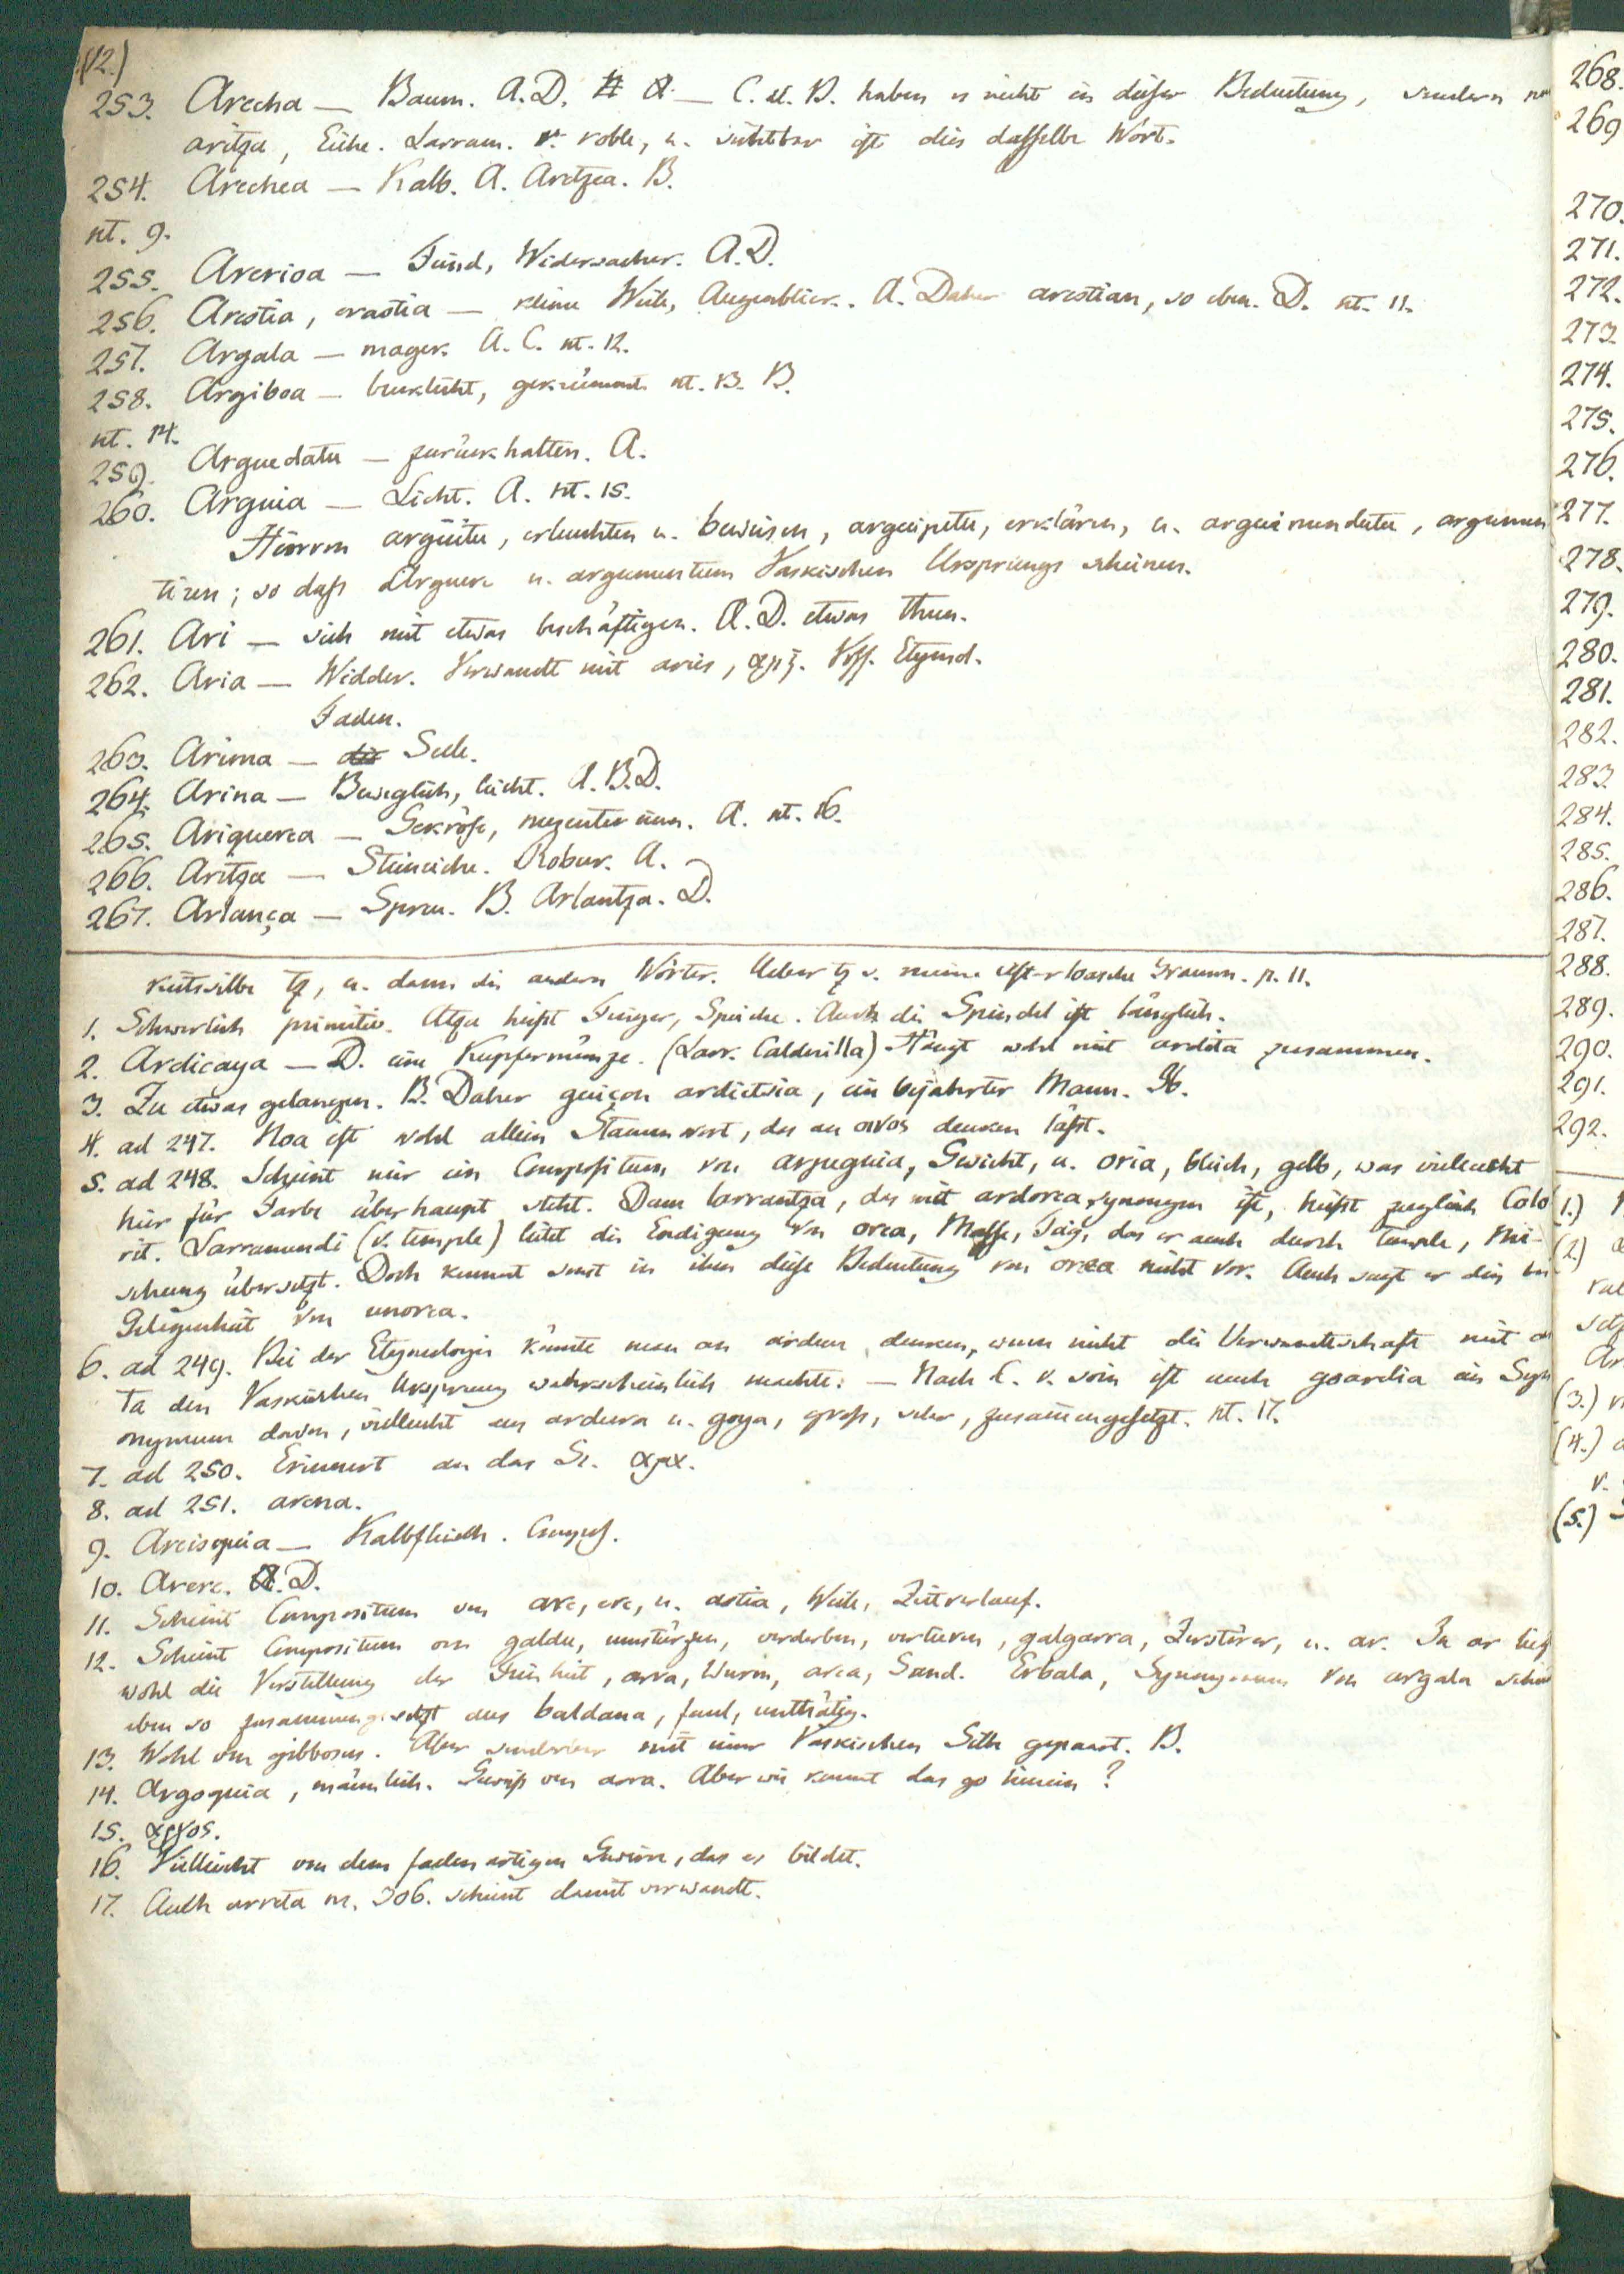 (12.)
253. Arecha — Baum. A.D. — C. u. B. haben es nicht in dieser Bedeutung, sondern nur
aritza, Eiche. Larram. v. roble, u. sichtbar ist dies dasselbe Wort.
254. Arechea — Kalb. A. Aretzea. B.
nt. 9.
255. Arerioa — Feind, Widersacher. A.D.
256. Arestia, erastia — kleine Weile, Augenblick. A. Daher arestian, so eben. D. nt. 11.
257. Argala — mager. A. C. nt. 12.
258. Argiboa — bucklicht, gekrümmt. nt. 13. B.
nt. 14.
259. Arguedatu — zurückhalten. A.
260. Arguia — Licht. A. nt. 15.
Hiervon argüitu, erleuchten u. beweisen, arguipetu, erklären, u. arguimendatu, argumen
tiren; so dass Arguere u. argumentum Vaskischen Ursprungs scheinen.
261. Ari — sich mit etwas beschäftigen. A.D. etwas thun.
262. Aria — Widder. Verwandt mit aries, Voss. Etymol.
Faden.
263. Arima — die Seele.
264. Arina — Beweglich, leicht. A.B.D.
265. Ariquerea — Gekröse, mezenterium. A. nt. 16.
266. Aritza — Steineiche. Robur. A.
267. Arlança — Spreu. B. Arlantza. D.
keitssilbe tz, u. dann die andern Wörter. Ueber tz s. meine Gramm. p. 11.
1. Schwerlich primitiv. Atza heisst Finger, Speiche. Auch die Spindel ist länglich.
2. Ardicaya — D. eine Kupfermünze. (Larr. Calderilla) Hängt wohl mit ardita zusammen.
3. Zu etwas gelangen. B. Daher guiçon ardietsia, ein bejahrter Mann.
4. ad 247. Noa ist wohl allein Stammwort, das an οινος denken lässt.
5. ad 248. Scheint mir ein Compositum von arpeguia, Gesicht, u. oria, bleich, gelb, was vielleicht
hier für Farbe überhaupt steht. Denn larrantza, das mit ardorea synonym ist, heisst zugleich Colo
rit. Larramendi (v. temple) leitet die Endigung von orea, Masse, Teig, das er auch durch temple, Mi-
schung übersetzt. Doch kommt sonst in ihm diese Bedeutung von orea nicht vor. Auch sagt er dies bei
Gelegenheit von unorea.
6. ad 249. Bei der Etymologie könnte man an ardeur denken, wenn nicht die Verwandtschaft mit
ta den Vaskischen Ursprung wahrscheinlich machte. — Nach L. v. soin ist auch goardia ein Syn
onymum davon, vielleicht aus ardura u. goya, gross, sehr, zusammengesetzt. nt. 17.
7. ad 250. Erinnert an das Gr.
8. ad 251. arena.
9. Arcisquia — Kalbfleisch. Compos.
10. Arere. A.D.
11. Scheint Compositum von are, ere, u. astia, Weile, Zeitverlauf.
12. Scheint Compositum von galdu, umstürzen, verderben, verlieren, galgarra, Zerstörer, u. ar. In ar liegt
wohl die Vorstellung der Feinheit, arra, Wurm, area, Sand. Erbala, Synonymum von argala scheint
eben so zusammengesetzt aus baldana, faul, unthätig.
13. Wohl von gibbosus. Aber sonderbar mit einer Vaskischen Silbe gepaart. B.
14. Argoquia, männlich. Gewiss von arra. Aber wie kommt das go hinein?
15. αργος.
16. Vielleicht von dem fadenartigen Gewirre, das es bildet.
17. Auch arreta nr. 306. scheint damit verwandt.
268.
269
270.
271.
272.
273.
274.
275.
276.
277.
278.
279.
280.
281.
282.
283
284.
285.
286.
287.
288.
289.
290.
291.
292.
(1.)
(2.)
(3.)
(4.)
v.
(5.)